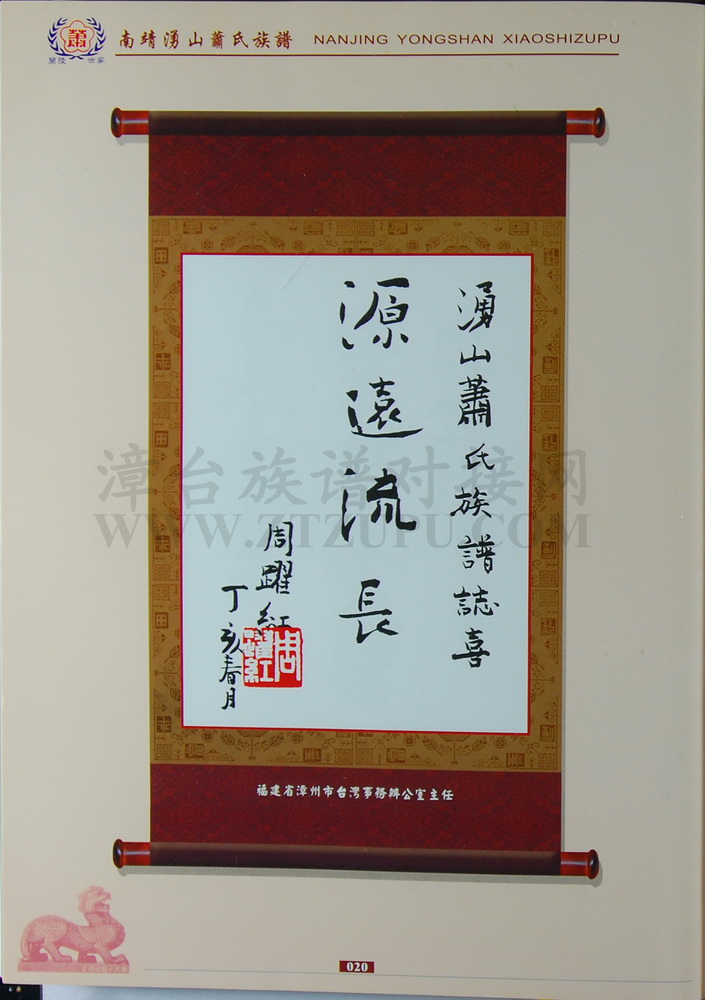 南靖湧山蕭氏族譜 NANJING YONGSHAN XIAOSHIZUPU
蕭
蘭陵 世家
湧山蕭氏族譜誌喜
源遠流長
周躍紅
丁亥春月
福建省漳州市台灣事務辦公室主任
漳台族谱对接网
WWW.ZTZUPU.COM
020